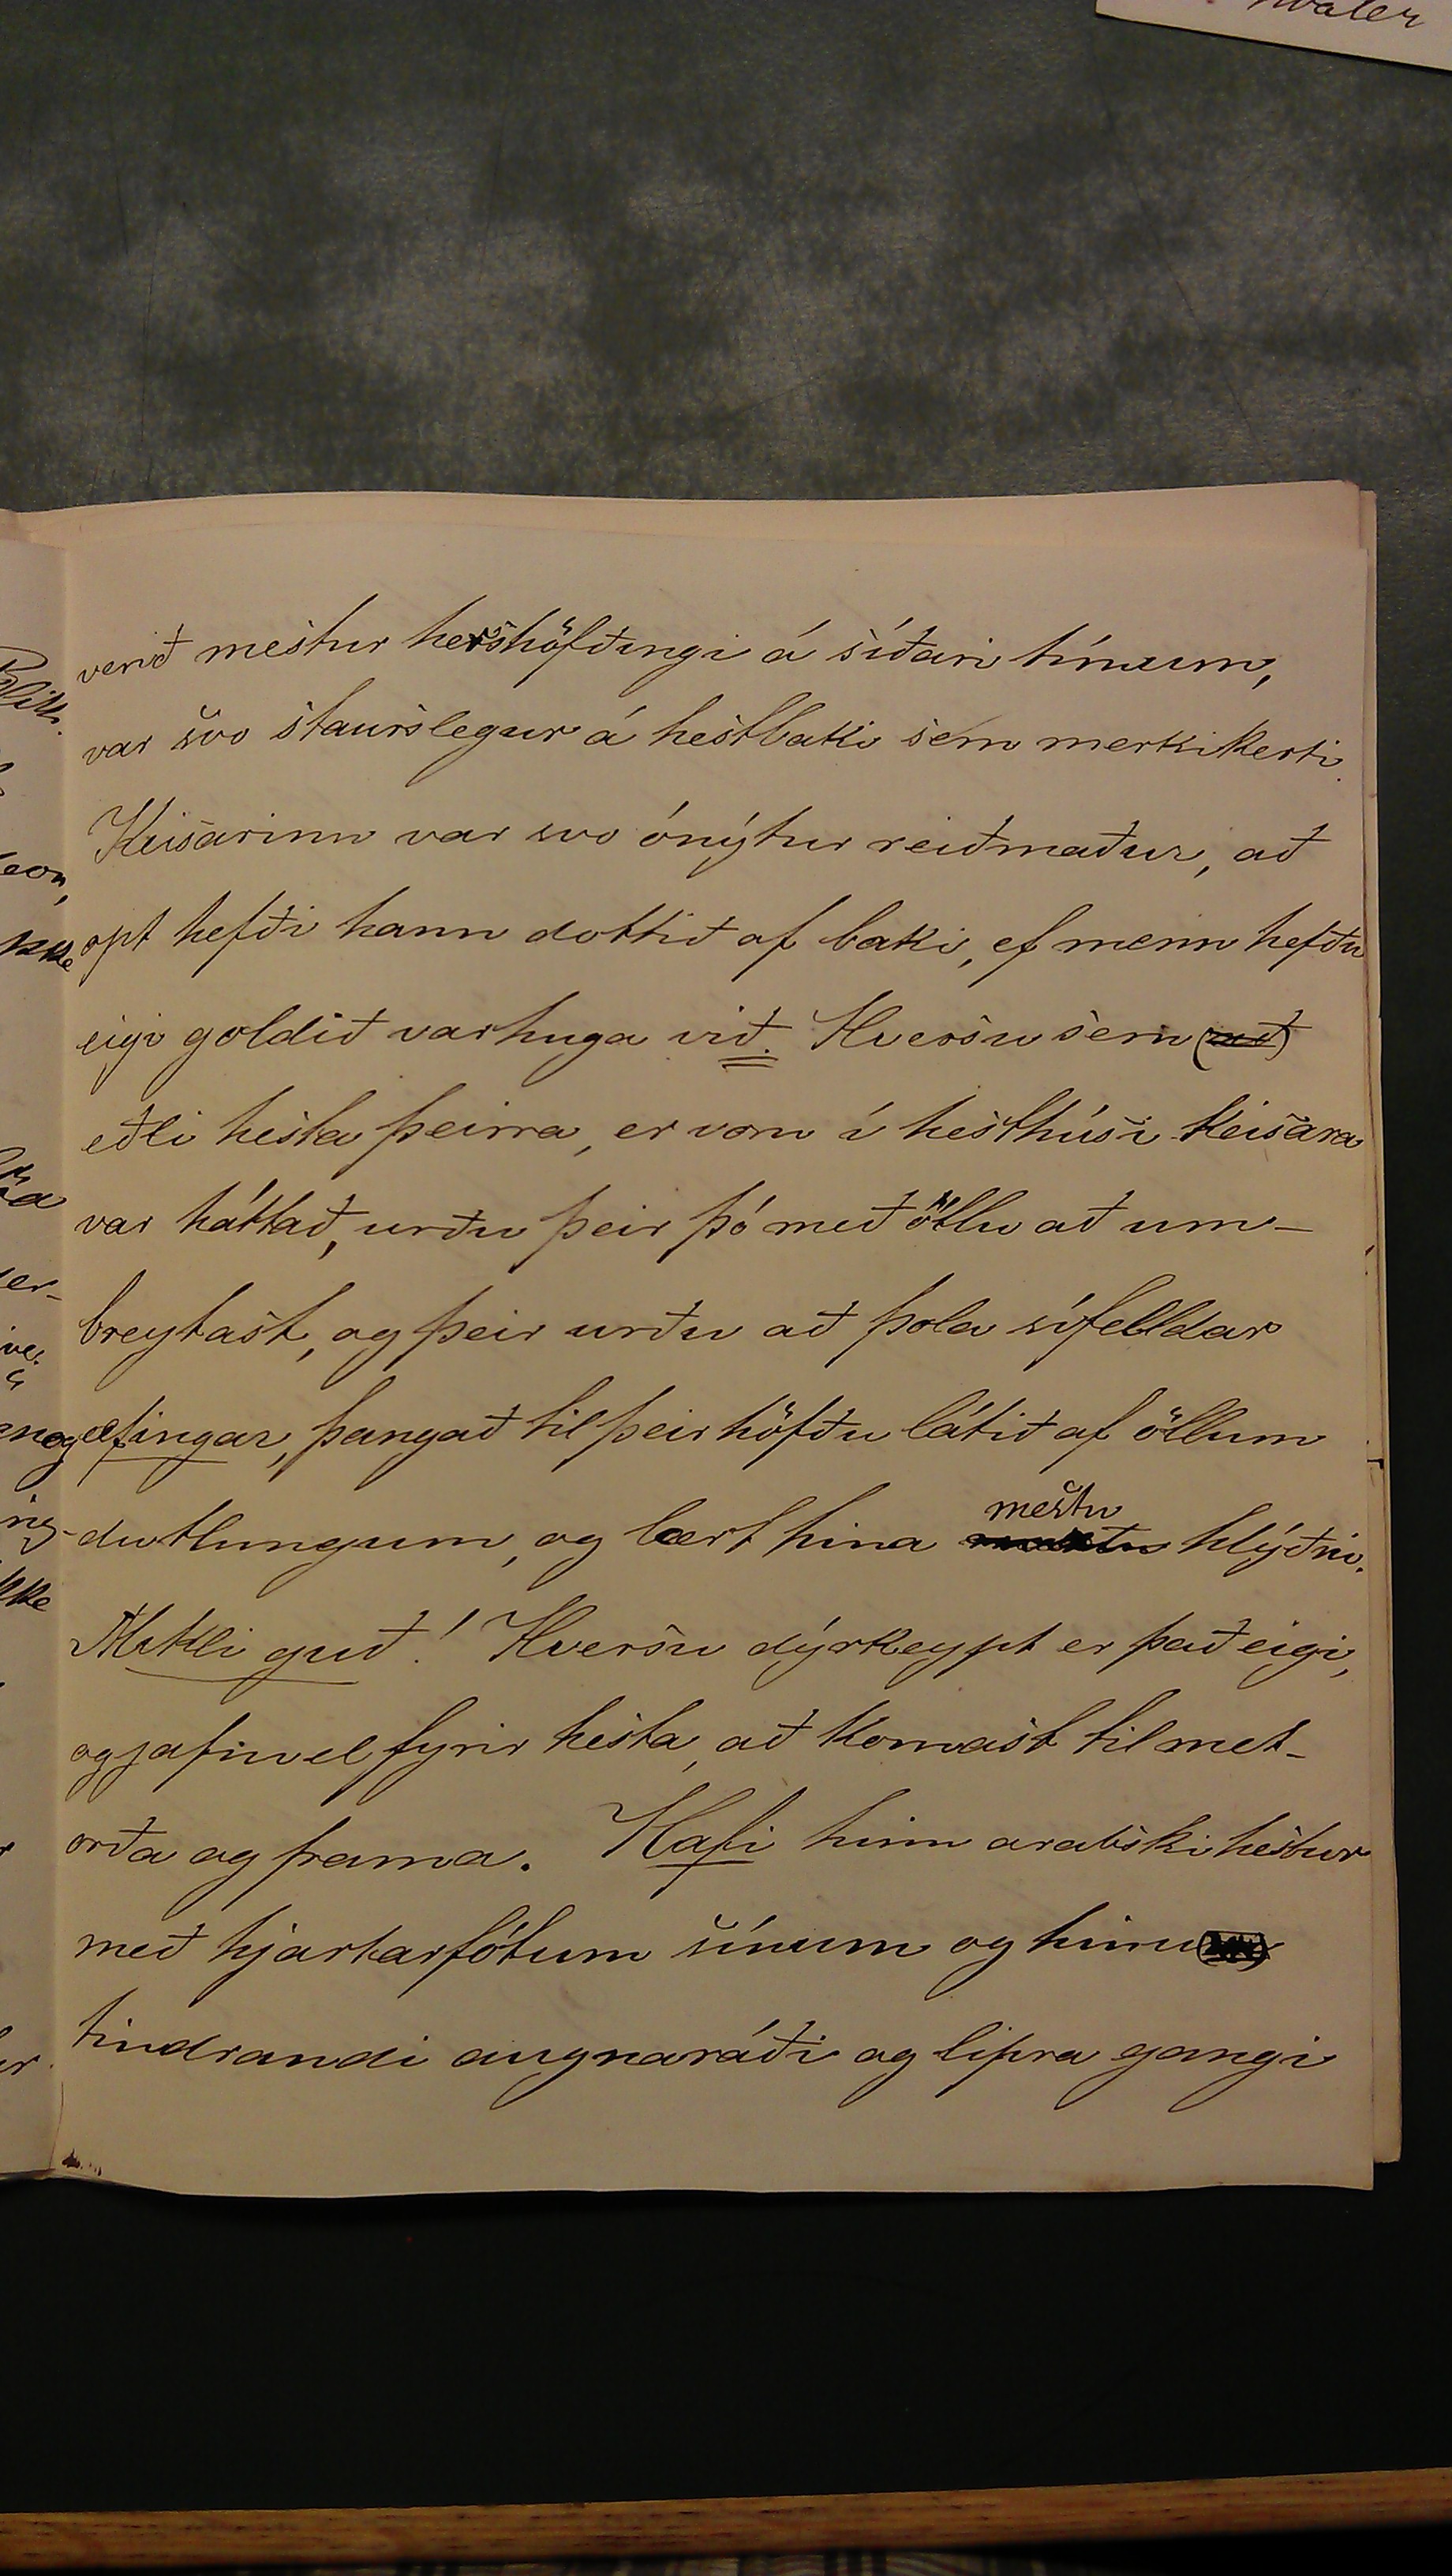 verið mestur hershöfðingi á síðari tímum,
var svo staurslegur á hestbaki sem merkikerti.
Keisarinn var svo ónýtur reiðmaður, að
opt hefði hann dottið af baki, ef menn hefðu
eigi goldið varhuga við. Hversu sem (að)
eðli hesta þeirra, er voru í hesthúsi keisara
var háttað, urðu þeir þó með öllu að um-
breytast, og þeir urðu að þola sífelldar
æfingar, þangað til þeir höfðu látið af öllum
mestu
dutlungum, og lært hina hlýðni.
Mikli guð! Hversu dýrkeypt er það eigi,
og jafnvel fyrir hesta, að komast til met-
orða og frama. Hafi hinn arabiski hestur
með hjartarfótum sínum og hinu
tindrandi augnaráði og lipra gangi